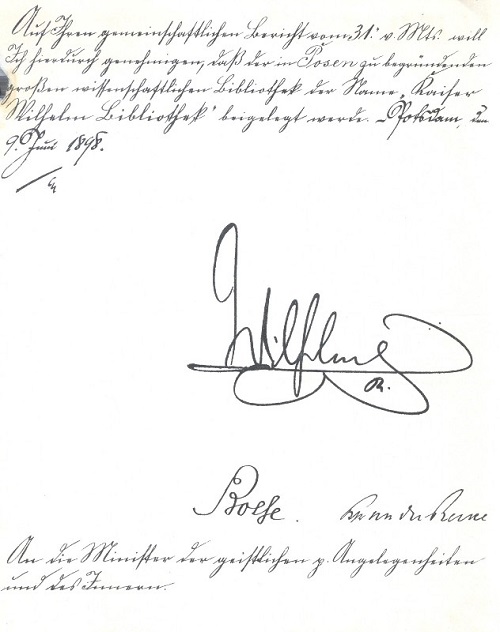 Auf Ihren gemeinschaftlichen Bericht vom 31. v. Mts. will
Ich hierdurch genehmigen, daß der in Posen zu begründenden
großen wissenschaftlichen Bibliothek der Name „Kaiser
Wilhelm Bibliothek" beigelegt werde. – Potsdam, den
9. Juni 1898.
Wilhelm
R.
Bosse.
An die Minister der geistlichen p. Angelegenheiten
und des Innern.